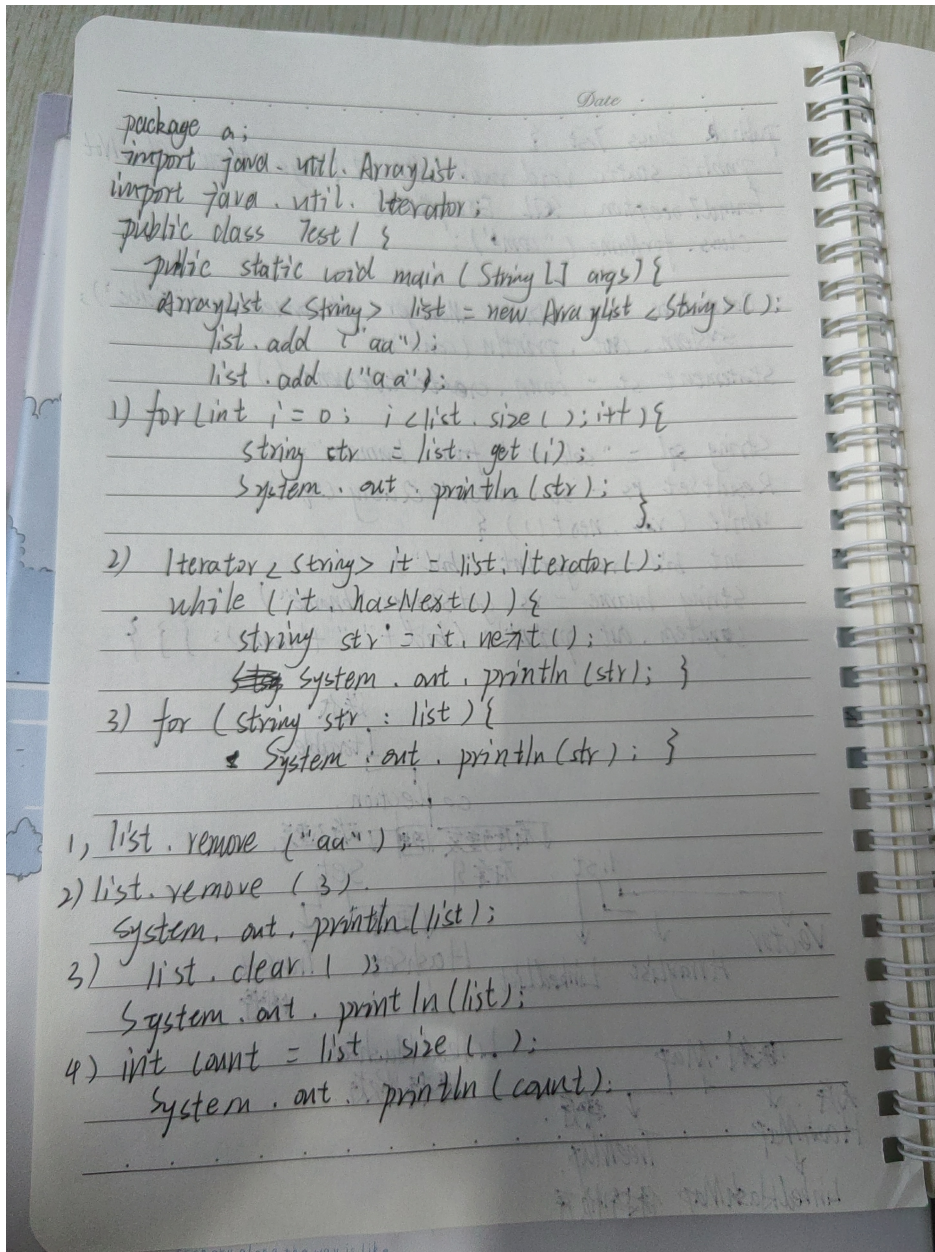 Date
package a;
import java.util.ArrayList.
import java.util.Iterator;
public class Test1 {
public static void main (String [] args) {
ArrayList <String> list = new ArrayList <String>();
list.add ("aa");
list.add ("aa");
1) for (int i = 0; i < list.size(); i++) {
string str = list.get(i);
System.out.println(str);
}.
2) Iterator <String> it = list.Iterator();
while (it.hasNext()) {
string str = it.next();
System.out.println(str); }
3) for (string str : list) {
System.out.println(str); }
1, list.remove ("aa");
2) list.remove (3).
System.out.println(list);
3) list.clear ();
System.out.println(list);
4) int count = list.size (.);
System.out.println(count).